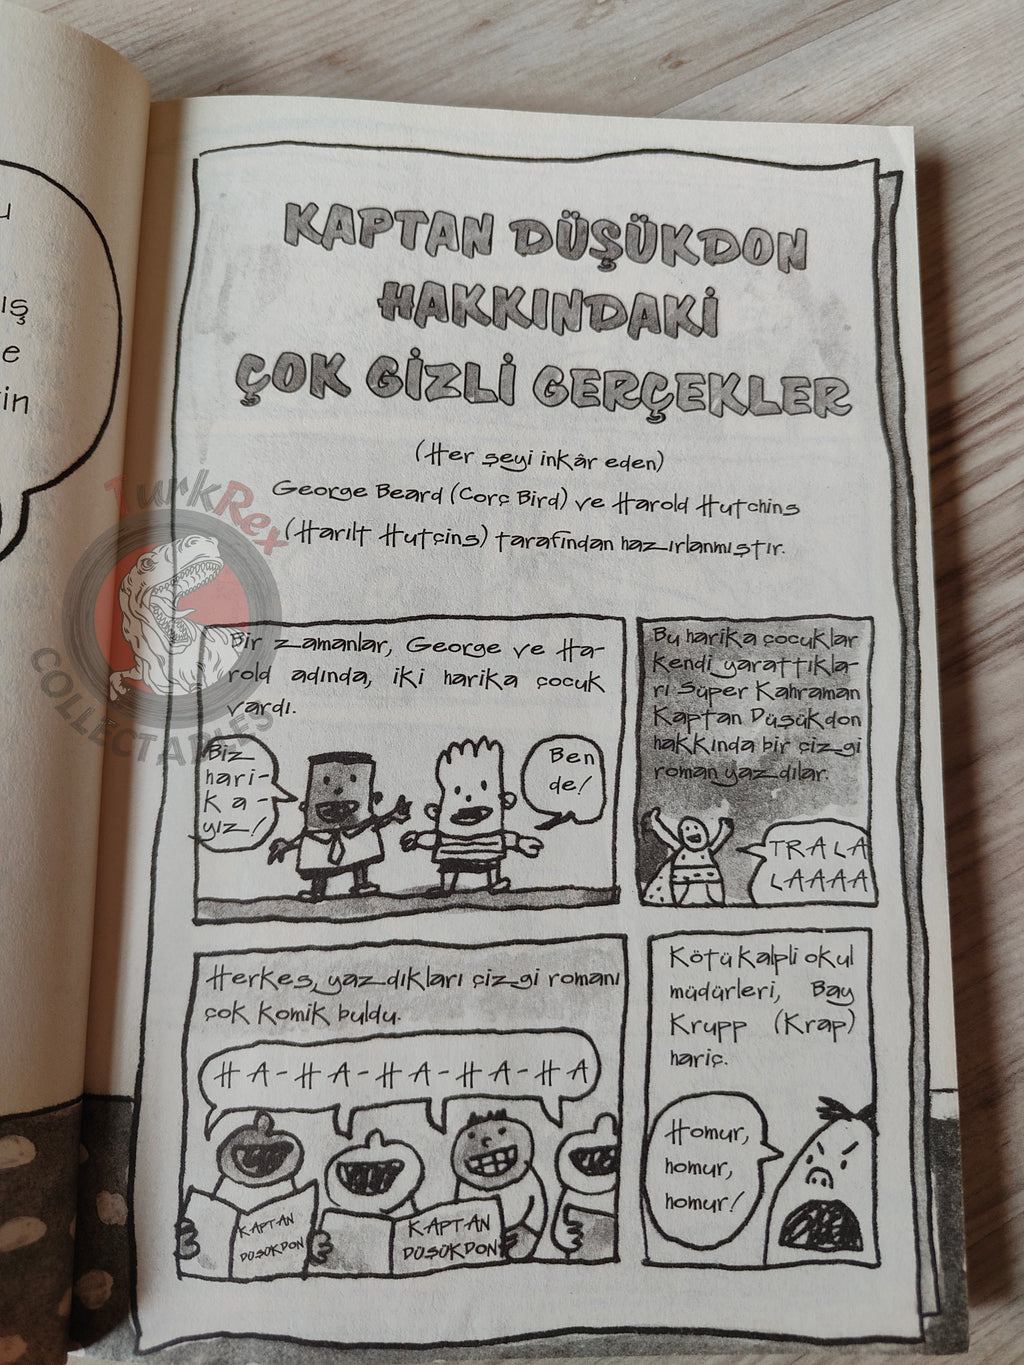 u
ış
e
in
KAPTAN DÜŞÜKDON
HAKKINDAKİ
ÇOK GİZLİ GERÇEKLER
(Her şeyi inkâr eden)
George Beard (Corç Bird) ve Harold Hutchins
(Harılt Hutçins) tarafından hazırlanmıştır.
TurkRex
COLLECTABLES
Bir zamanlar, George ve Ha-
rold adında, iki harika çocuk
vardı.
Biz
hari-
ka-
yız!
Ben
de!
Bu harika çocuklar
kendi yarattıkla-
rı Süper Kahraman
Kaptan Düşükdon
hakkında bir çizgi
roman yazdılar.
TRA LA
LAAAA
Herkes, yazdıkları çizgi romanı
çok komik buldu.
HA-HA-HA-HA-HA
KAPTAN
DÜŞÜKDON
KAPTAN
DÜŞÜKDON
Kötü kalpli okul
müdürleri, Bay
Krupp (Krap)
hariç.
Homur,
homur,
homur!